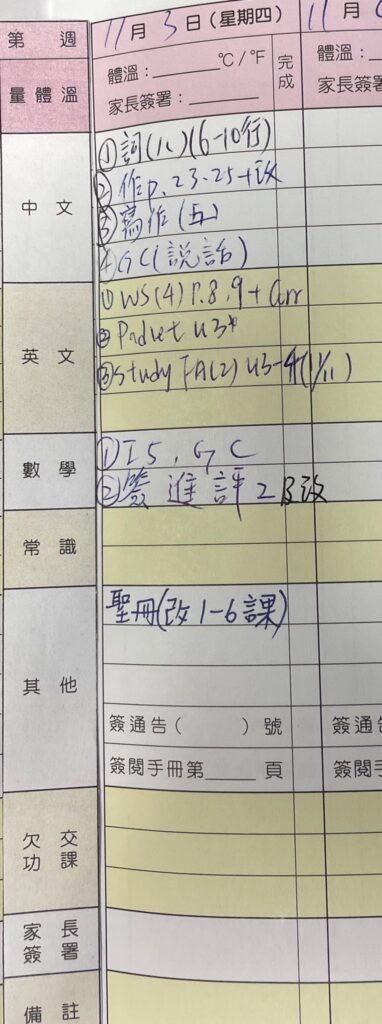 第 週
11月3日(星期四)
11月
量體溫
體溫：______°C/°F
完成
體溫：
家長簽署：______
家長簽署
中文
①詞(八)(6-10行)
②作p.23-25+改
③寫作(五)
④GC(説話)
英文
①WS(4) P.8,9 + Grr
②Padlet U3*
③Study FA(2) U3-4(1/11)
數學
①I5, GC
②簽進評2B改
常識
其他
聖冊(改1-6課)
簽通告( )號
簽通告
簽閱手冊第____頁
簽閱手
欠交功課
家長簽署
備註